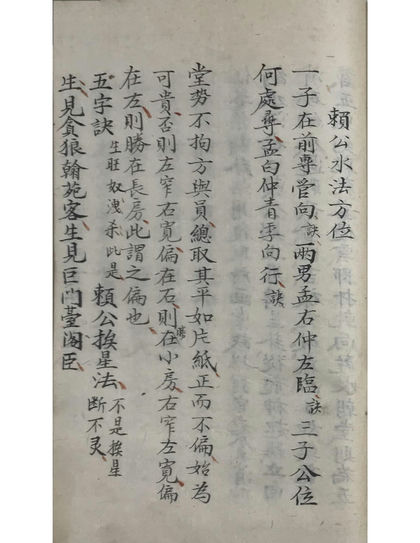 賴公水法方位
一子在前專管向訣兩男孟右仲左臨訣三子公位
何處尋孟白仲青季向行訣
堂势不拘方與員總取其平如片紙正而不偏始為
可貴否則左窄右寬偏在右則勝在小房右窄左寬偏
在左則勝在長房此謂之偏也
五字訣 生旺奴洩杀此是 賴公挨星法 不是挨星断不灵
生見貪狼翰苑客生見巨门臺阁臣